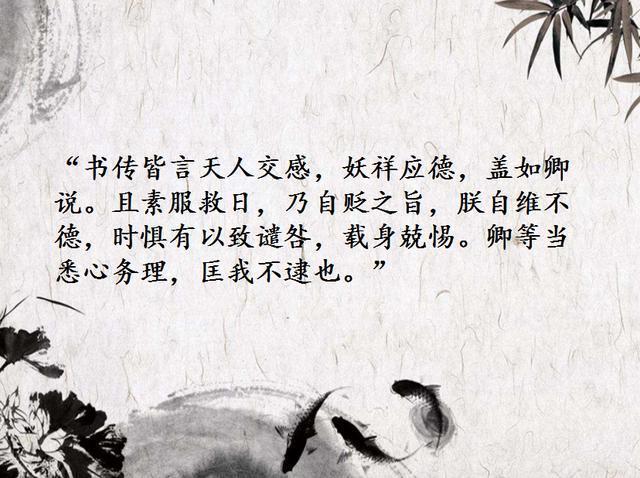 “书传皆言天人交感，妖祥应德，盖如卿
说。且素服救日，乃自贬之旨，朕自维不
德，时惧有以致谴咎，载身兢惕。卿等当
悉心务理，匡我不逮也。”